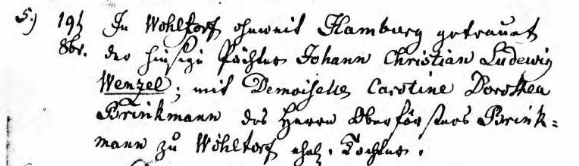 5.) 19t In Wohltorf ohnweit Hamburg getrauet
8br. der hiesige Pächter Johann Christian Ludewig
Wenzel; mit Demoiselle Carotine Dorothea
Brinkmann des Herrn Oberförsters Brink=
mann zu Wohltorf ehel. Tochter.